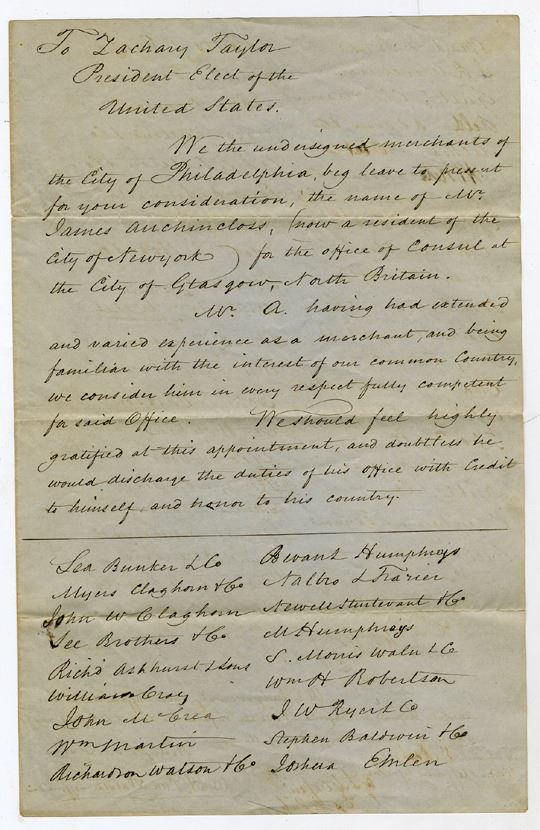 To Zachary Taylor
President Elect of the
United States.
We the undersigned merchants of
the City of Philadelphia, beg leave to present
for your consideration, the name of Mr.
James Auchincloss, (now a resident of the
City of Newyork) for the office of Consul at
the City of Glasgow, North Britain.
Mr. A. having had extended
and varied experience as a merchant, and being
familiar with the interest of our common Country,
we consider him in every respect fully competent
for said Office. We should feel highly
gratified at this appointment, and doubtless he
would discharge the duties of his office with Credit
to himself, and honor to his country.
Lea Bunker & Co
Myers Claghorn & Co
John W Claghorn
Lee Brothers & Co
Richd Ashhurst & Sons
William Craig
John McCrea
Wm Martin
Richardson Watson & Co
Bevant Humphreys
Nalbro & Frazier
Newell Sturtevant & Co
M Humphreys
S. Morris Waln & Co
Wm H Robertson
J W Ryers Co
Stephen Baldwin & Co
Joshua Emlen